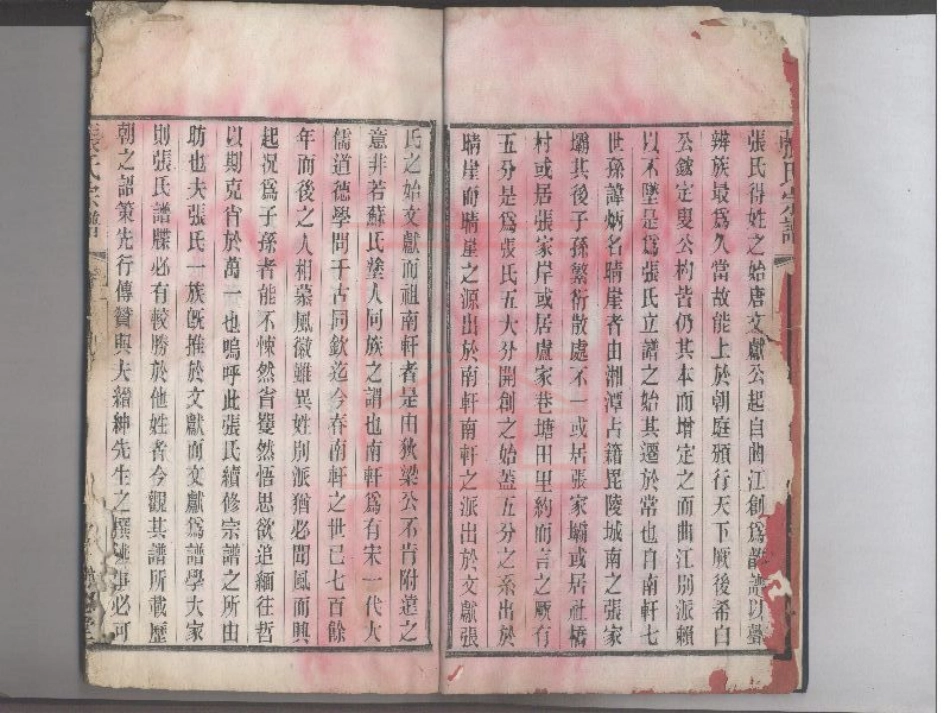 張氏宗譜
張氏得姓之始唐文獻公起自曲江創爲譜以聲
辨族最爲久當故能上於朝庭頒行天下厥後希白
公鉞定叟公杓皆仍其本而增定之而曲江別派賴
以不墜是爲張氏立譜之始其遷於常也自南軒七
世孫諱炳名晴崖者由湘潭占籍毘陵城南之張家
壩其後子孫繁衍散處不一或居張家壩或居社橋
村或居張家岸或居盧家巷塘田里約而言之厥有
五分是爲張氏五大分開創之始蓋五分之系出於
晴崖而晴崖之源出於南軒南軒之派出於文獻張
氏之始文獻而祖南軒者是由狄梁公不肯附遠之
意非若蘇氏塗人同族之謂也南軒爲有宋一代大
儒道德學問千古同欽迄今吞南軒之世已七百餘
年而後之人相慕風徽雖異姓別派猶必聞風而興
起況爲子孫者能不悚然省矍然悟思欲追緬往哲
以期克肖於萬一也嗚呼此張氏續修宗譜之所由
昉也夫張氏一族既推於文獻而文獻爲譜學大家
則張氏譜牒必有較勝於他姓者今觀其譜所載歷
朝之詔策先行傳贊與夫縉紳先生之撰述事必可
張氏宗譜